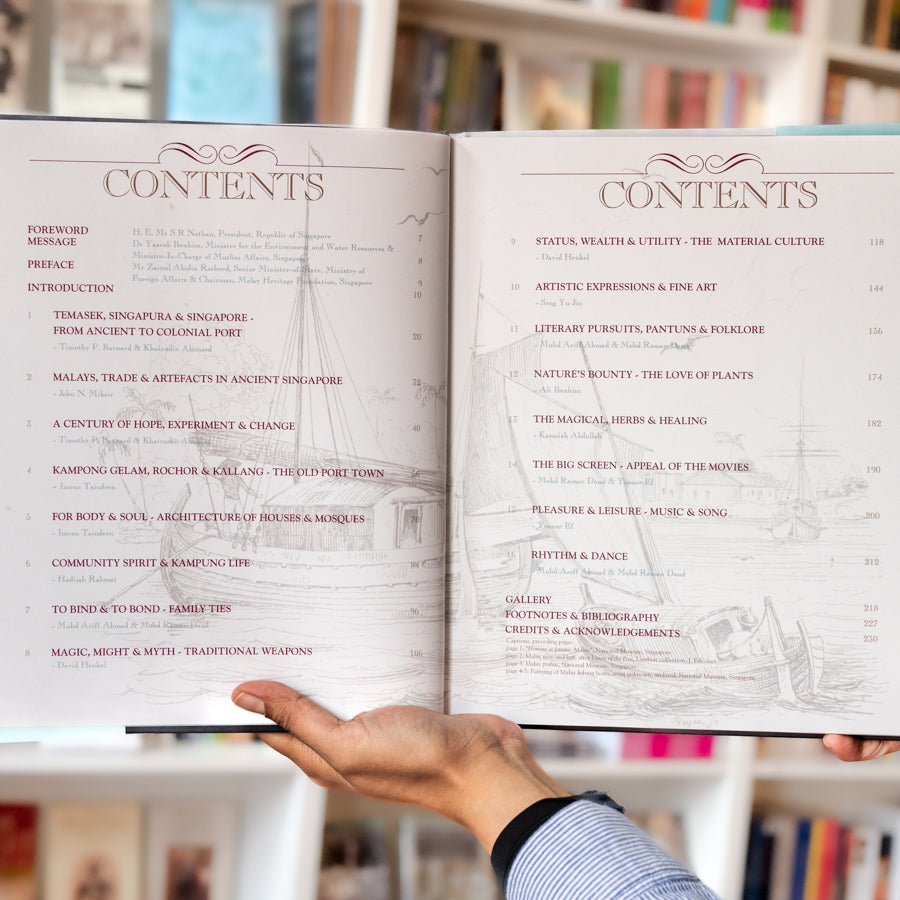 CONTENTS
FOREWORD
H. E. Mr S R Nathan, President, Republic of Singapore
7
MESSAGE
Dr Yaacob Ibrahim, Minister for the Environment and Water Resources &
Minister-In-Charge of Muslim Affairs, Singapore
8
PREFACE
Mr Zainul Abidin Rasheed, Senior Minister-of-State, Ministry of
Foreign Affairs & Chairman, Malay Heritage Foundation, Singapore
9
INTRODUCTION
10
1 TEMASEK, SINGAPURA & SINGAPORE -
FROM ANCIENT TO COLONIAL PORT 20
- Timothy P. Barnard & Khairudin Aljunied
2 MALAYS, TRADE & ARTEFACTS IN ANCIENT SINGAPORE 32
- John N. Miksic
3 A CENTURY OF HOPE, EXPERIMENT & CHANGE 40
- Timothy P. Barnard & Khairudin Aljunied
4 KAMPONG GELAM, ROCHOR & KALLANG - THE OLD PORT TOWN 56
- Imran Tajudeen
5 FOR BODY & SOUL - ARCHITECTURE OF HOUSES & MOSQUES 70
- Imran Tajudeen
6 COMMUNITY SPIRIT & KAMPUNG LIFE 84
- Hadijah Rahmat
7 TO BIND & TO BOND - FAMILY TIES 96
- Muhd Ariff Ahmad & Mohd Raman Daud
8 MAGIC, MIGHT & MYTH - TRADITIONAL WEAPONS 106
- David Henkel
CONTENTS
9 STATUS, WEALTH & UTILITY - THE MATERIAL CULTURE 118
- David Henkel
10 ARTISTIC EXPRESSIONS & FINE ART 144
- Seng Yu Jin
11 LITERARY PURSUITS, PANTUNS & FOLKLORE 156
- Muhd Ariff Ahmad & Mohd Raman Daud
12 NATURE'S BOUNTY - THE LOVE OF PLANTS 174
- Ali Ibrahim
13 THE MAGICAL, HERBS & HEALING 182
- Kamsiah Abdullah
14 THE BIG SCREEN - APPEAL OF THE MOVIES 190
- Mohd Raman Daud & Yusnor Ef
15 PLEASURE & LEISURE - MUSIC & SONG 200
- Yusnor Ef
16 RHYTHM & DANCE 212
- Muhd Ariff Ahmad & Mohd Raman Daud
GALLERY 218
FOOTNOTES & BIBLIOGRAPHY 227
CREDITS & ACKNOWLEDGEMENTS 230
Captions, preceding pages:
page 1: "Homme et femme, Malais", National Museum, Singapore.
page 2: Malay man and boy, after Vision of the Past, Limborn collection, J. Falconer.
page 3: Malay prahus, National Museum, Singapore.
page 4-5: Painting of Malay fishing boats, artist unknown, undated, National Museum, Singapore.